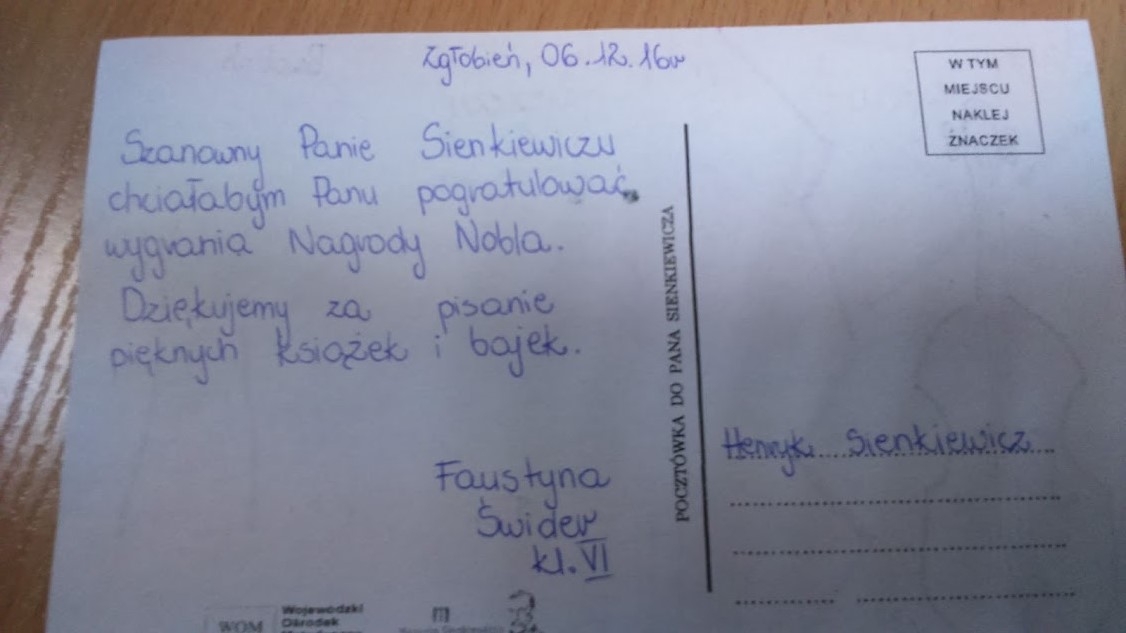 Zgłobień, 06.12.16r
Szanowny Panie Sienkiewiczu
chciałabym Panu pogratulować
wygrania Nagrody Nobla.
Dziękujemy za pisanie
pięknych książek i bajek.
Faustyna
Świder
kl. VI
POCZTÓWKA DO PANA SIENKIEWICZA
W TYM
MIEJSCU
NAKLEJ
ZNACZEK
Henryk Sienkiewicz
WOM
Wojewódzki
Ośrodek